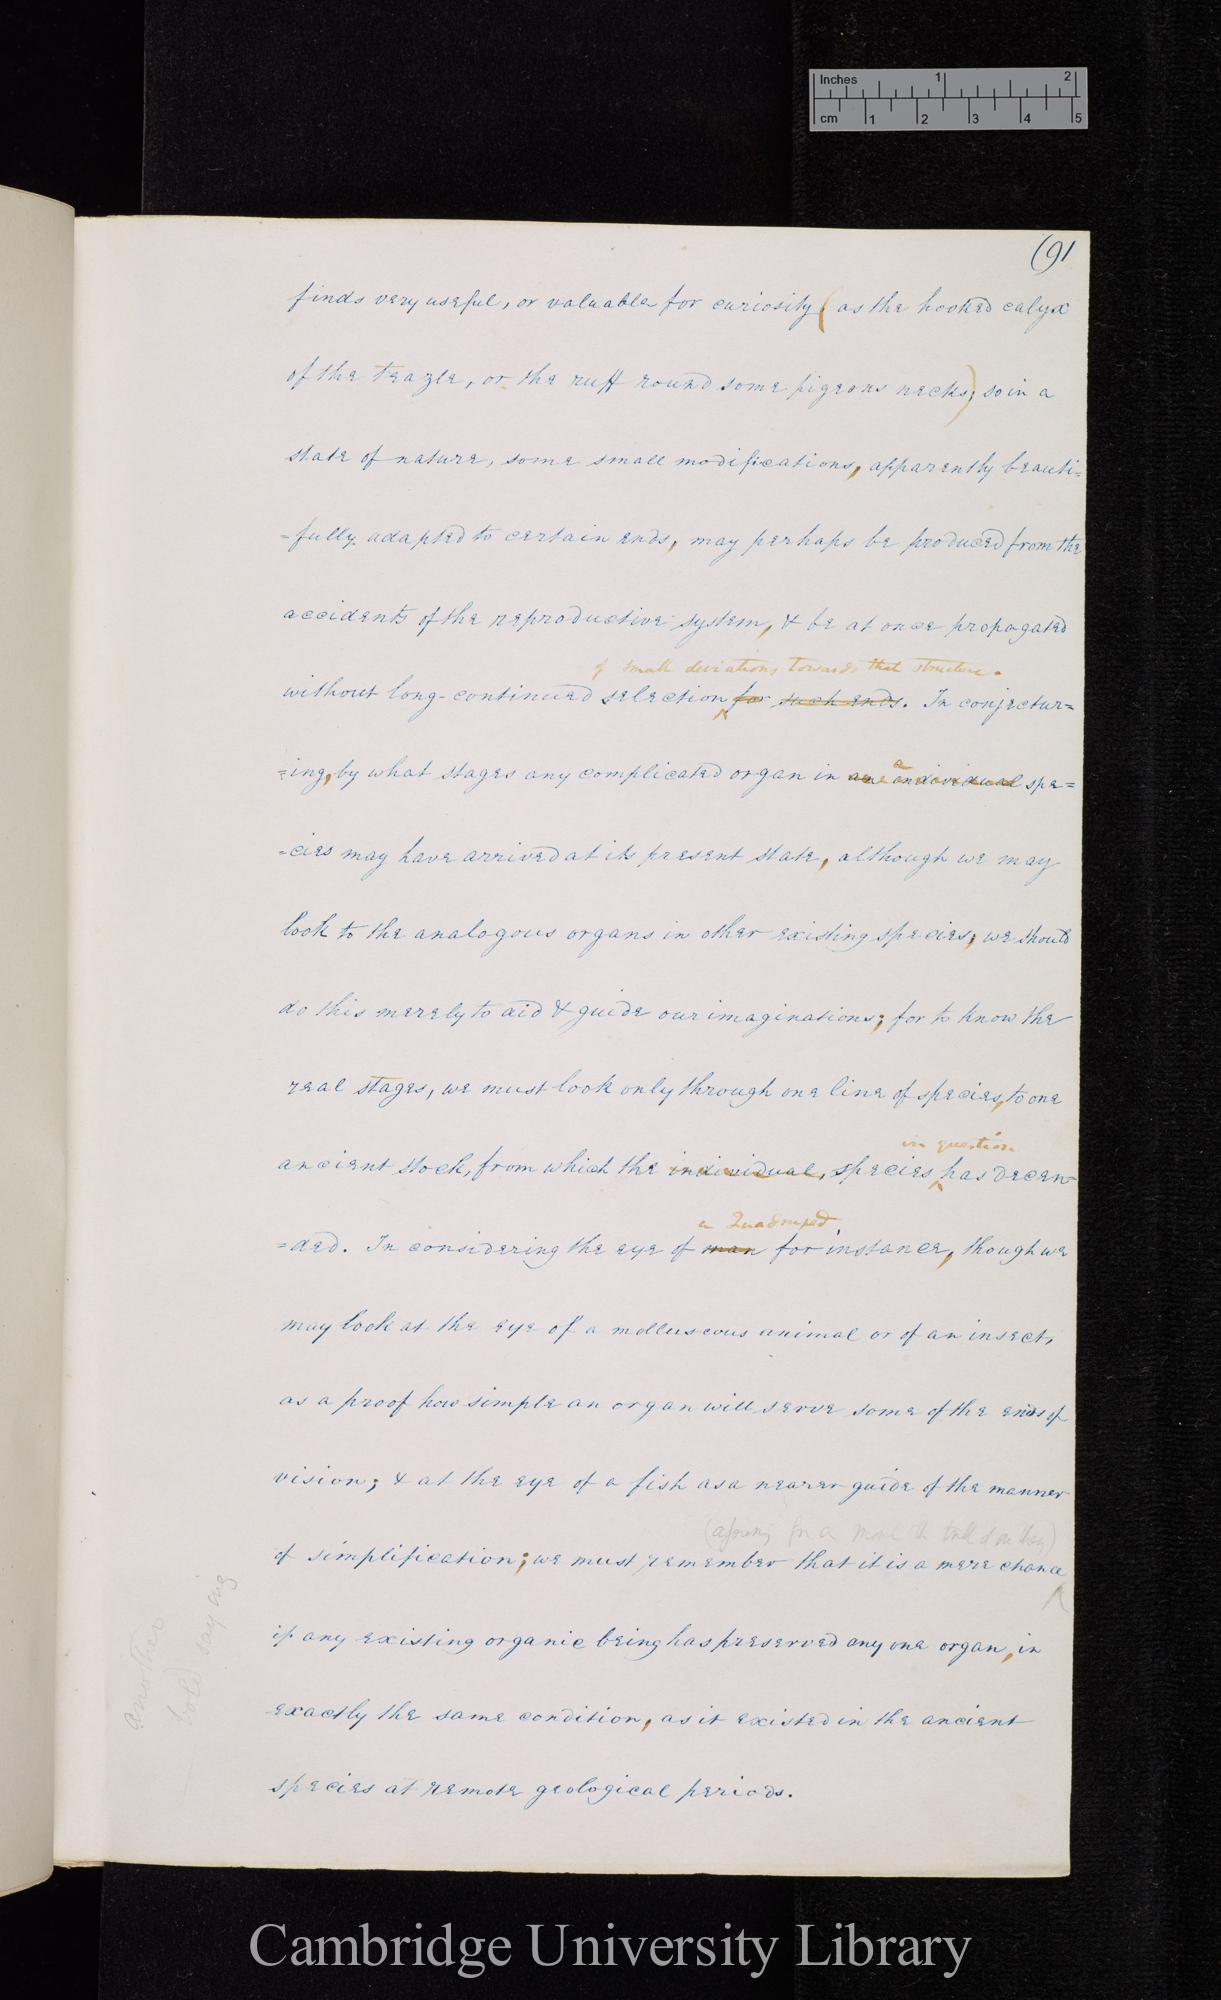 Inches 1 2
cm 1 2 3 4 5
(91
finds very useful, or valuable for curiosity (as the hooked calyx
of the teazle, or the ruff round some pigeons necks); so in a
state of nature, some small modifications, apparently beauti=
=fully adapted to certain ends, may perhaps be produced from the
accidents of the reproductive system, & be at once propagated
of small deviations towards that structure.
without long-continued selection for such ends. In conjectur=
a
=ing, by what stages any complicated organ in an individual spe=
=cies may have arrived at its present state, although we may
look to the analogous organs in other existing species, we should
do this merely to aid & guide our imaginations; for to know the
real stages, we must look only through one line of species, to one
in question
ancient stock, from which the individual, species has decen=
a Quadruped,
=ded. In considering the eye of man for instance, though we
may look at the eye of a molluscous animal or of an insect,
as a proof how simple an organ will serve some of the ends of
vision; & at the eye of a fish as a nearer guide of the manner
of simplification; we must remember that it is a mere chance
if any existing organic being has preserved any one organ, in
exactly the same condition, as it existed in the ancient
species at remote geological periods.
another
bold saying
Cambridge University Library